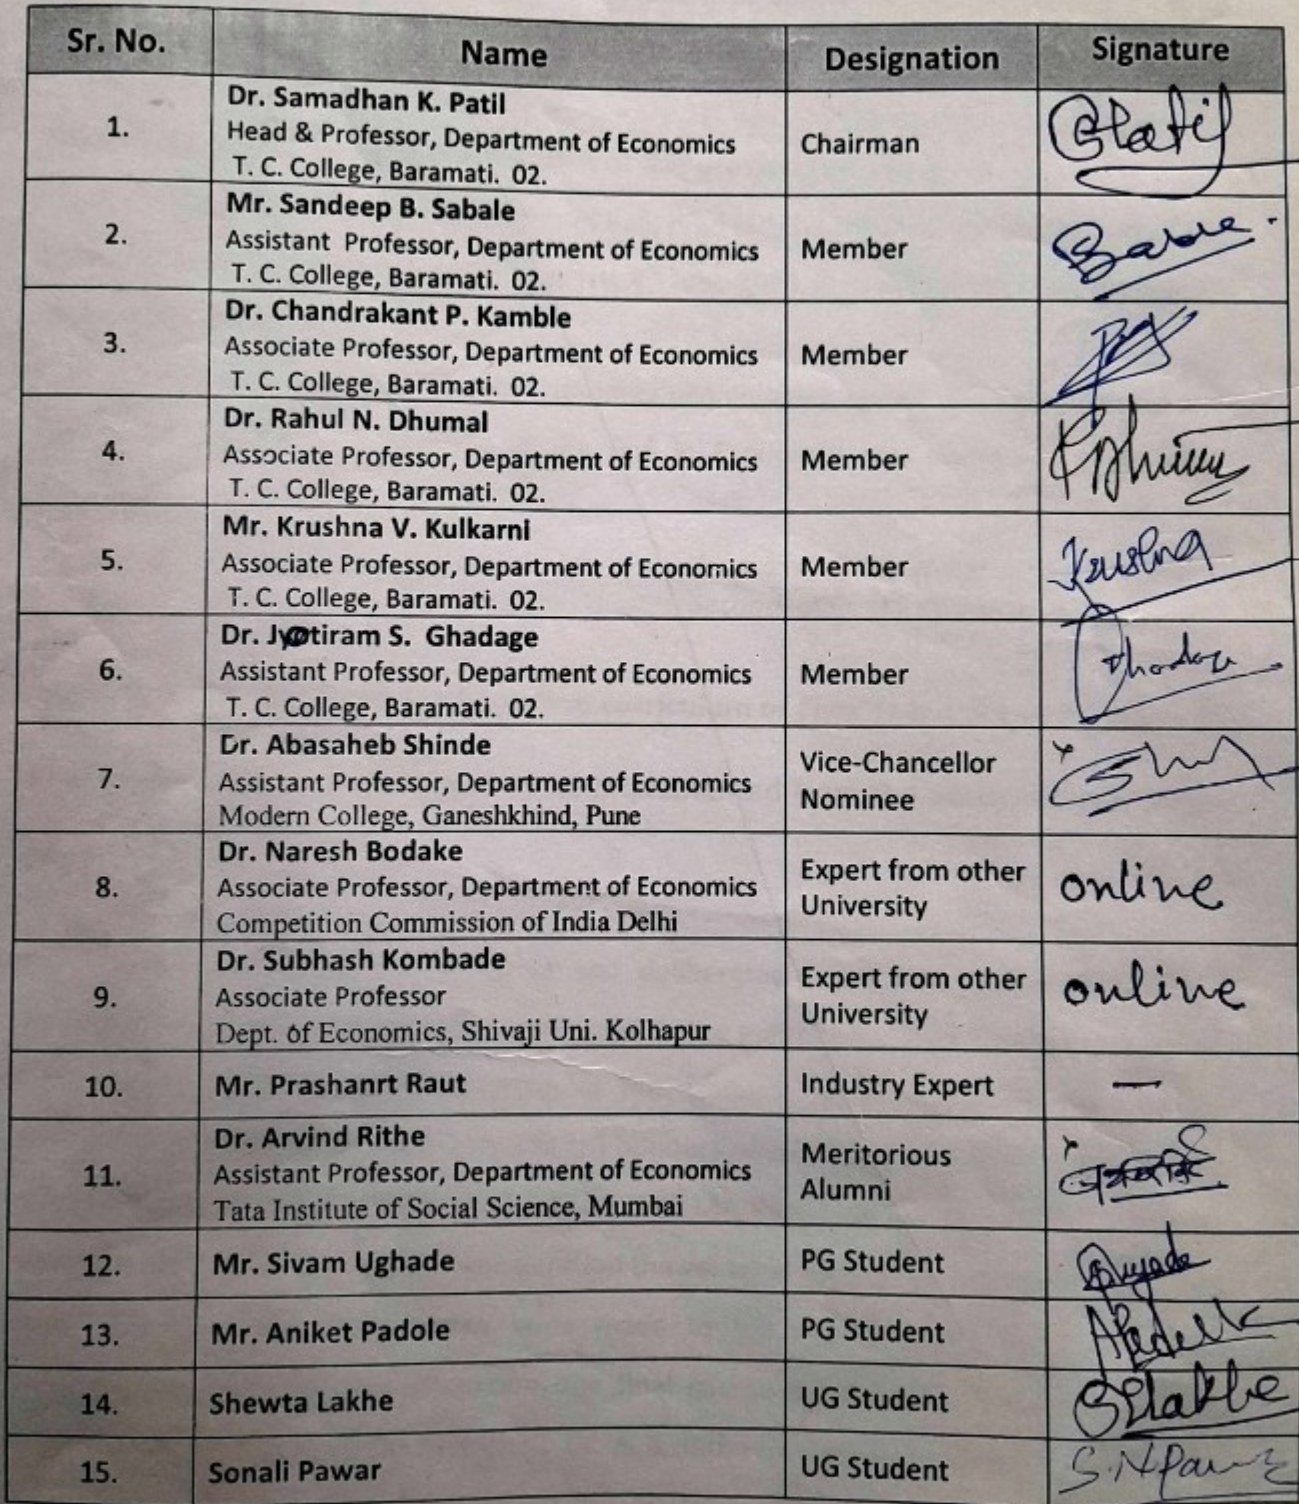 Sr. No. Name Designation Signature
1. Dr. Samadhan K. Patil
Head & Professor, Department of Economics
T. C. College, Baramati. 02.
Chairman
2. Mr. Sandeep B. Sabale
Assistant Professor, Department of Economics
T. C. College, Baramati. 02.
Member
3. Dr. Chandrakant P. Kamble
Associate Professor, Department of Economics
T. C. College, Baramati. 02.
Member
4. Dr. Rahul N. Dhumal
Associate Professor, Department of Economics
T. C. College, Baramati. 02.
Member
5. Mr. Krushna V. Kulkarni
Associate Professor, Department of Economics
T. C. College, Baramati. 02.
Member
Krushna
6. Dr. Jyotiram S. Ghadage
Assistant Professor, Department of Economics
T. C. College, Baramati. 02.
Member
7. Dr. Abasaheb Shinde
Assistant Professor, Department of Economics
Modern College, Ganeshkhind, Pune
Vice-Chancellor
Nominee
8. Dr. Naresh Bodake
Associate Professor, Department of Economics
Competition Commission of India Delhi
Expert from other
University
online
9. Dr. Subhash Kombade
Associate Professor
Dept. of Economics, Shivaji Uni. Kolhapur
Expert from other
University
online
10. Mr. Prashanrt Raut Industry Expert —
11. Dr. Arvind Rithe
Assistant Professor, Department of Economics
Tata Institute of Social Science, Mumbai
Meritorious
Alumni
12. Mr. Sivam Ughade PG Student
13. Mr. Aniket Padole PG Student
14. Shewta Lakhe UG Student
15. Sonali Pawar UG Student